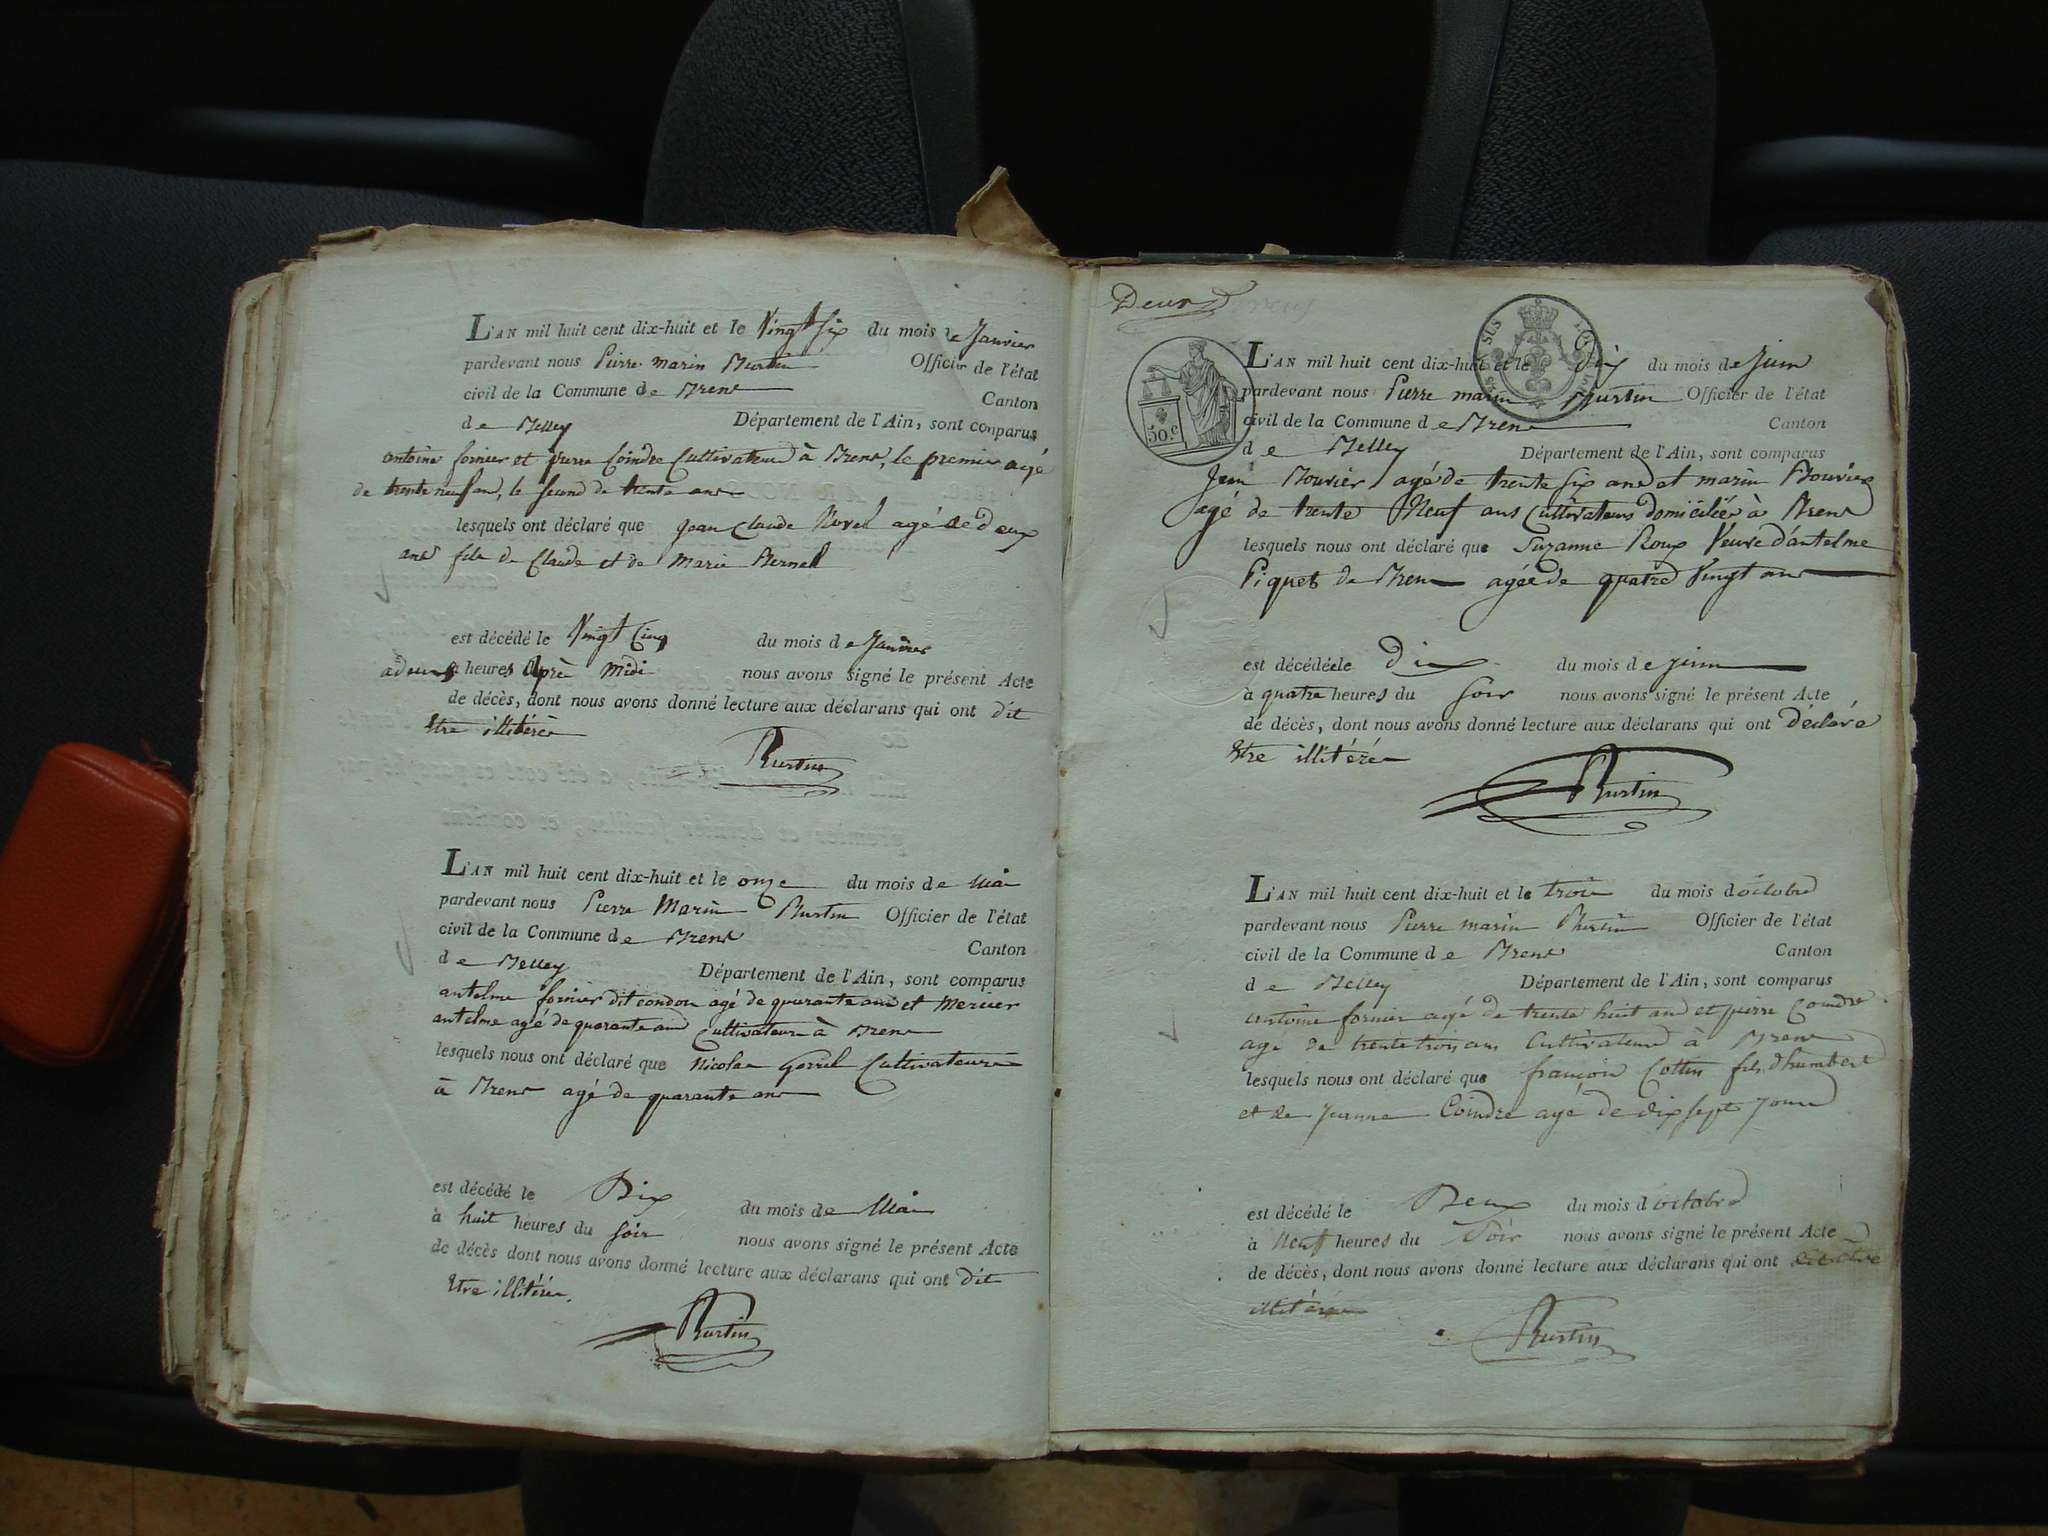 L'AN mil huit cent dix-huit et le Vingt Six du mois de Janvier
pardevant nous Pierre marin Burtin Officier de l'état
civil de la Commune de Brens
Canton
de Belley Département de l'Ain, sont comparus
antoine fornier et pierre Coindre Cultivateurs à Brens, le premier agé
de trente neuf ans, le second de trente ans
lesquels ont déclaré que jean Claude agé de deux
ans fils de Claude et de Marie
est décédé le Vingt Cinq du mois de Janvier
a deux heures après midi nous avons signé le présent Acte
de décès, dont nous avons donné lecture aux déclarans qui ont dit
Etre illitérés
Burtin
L'AN mil huit cent dix-huit et le onze du mois de Mai
pardevant nous Pierre Marin Burtin Officier de l'état
civil de la Commune de Brens
Canton
de Belley Département de l'Ain, sont comparus
antelme fornier dit condou agé de quarante ans et Mercier
antelme agé de quarante ans Cultivateurs à Brens
lesquels nous ont déclaré que Nicolas Cultivateur
à Brens agé de quarante ans
est décédé le Dix du mois de Mai
à huit heures du soir nous avons signé le présent Acte
de décès dont nous avons donné lecture aux déclarans qui ont dit
Etre illitérés.
Burtin
Deux
50.c
L'AN mil huit cent dix-huit et le dix du mois de Juin
pardevant nous Pierre marin Burtin Officier de l'état
civil de la Commune de Brens Canton
de Belley Département de l'Ain, sont comparus
Jean Bouvier agé de trente six ans et marin Bouvier
agé de trente Neuf ans Cultivateurs domiciliés à Brens
lesquels nous ont déclaré que Suzanne Roux Veuve d'antelme
Piquet de Brens agée de quatre Vingt ans
est décédée le dix du mois de juin
à quatre heures du soir nous avons signé le présent Acte
de décès, dont nous avons donné lecture aux déclarans qui ont déclaré
Etre illitérés
Burtin
L'AN mil huit cent dix-huit et le trois du mois d'octobre
pardevant nous Pierre marin Burtin Officier de l'état
civil de la Commune de Brens Canton
de Belley Département de l'Ain, sont comparus
antoine fornier agé de trente huit ans et pierre Coindre
agé de trente trois ans Cultivateurs à Brens
lesquels nous ont déclaré que françois Cottin fils d'humbert
et de Jeanne Coindre agé de dix sept jours
est décédé le Deux du mois d'octobre
à Neuf heures du Soir nous avons signé le présent Acte
de décès, dont nous avons donné lecture aux déclarans qui ont
illitérés
Burtin